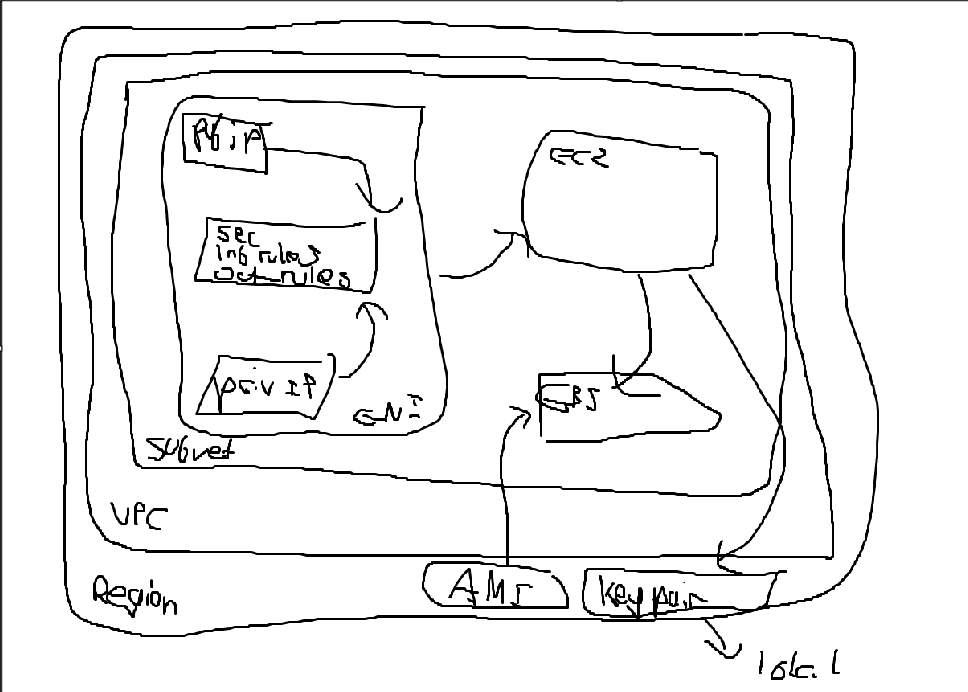 PbiP
EC2
sec
inb rules
out rules
priv IP
ENI
EBS
Subnet
VPC
Region
AMI
key pair
local